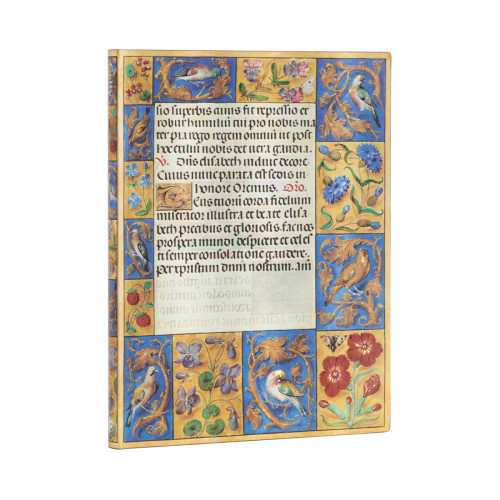 sio superbis quus fit repressio et
robur humiliū qui pro nobis ma
ter pia rogo regem omniū ut post
hoc exiliū nobis det vera gaudia.
V. Dn̄s elisabeth induit decore.
Cuius nunc parata est sedis in
honore Oremus. Orō.
Tuorū corda fidelium
miserator illustra et beate elisa
beth precibus et gloriosis fac nos
prospera mundi despicere et celes
ti semper consolatione gaudere.
per xpristum dnm̄ nostrum. am̄